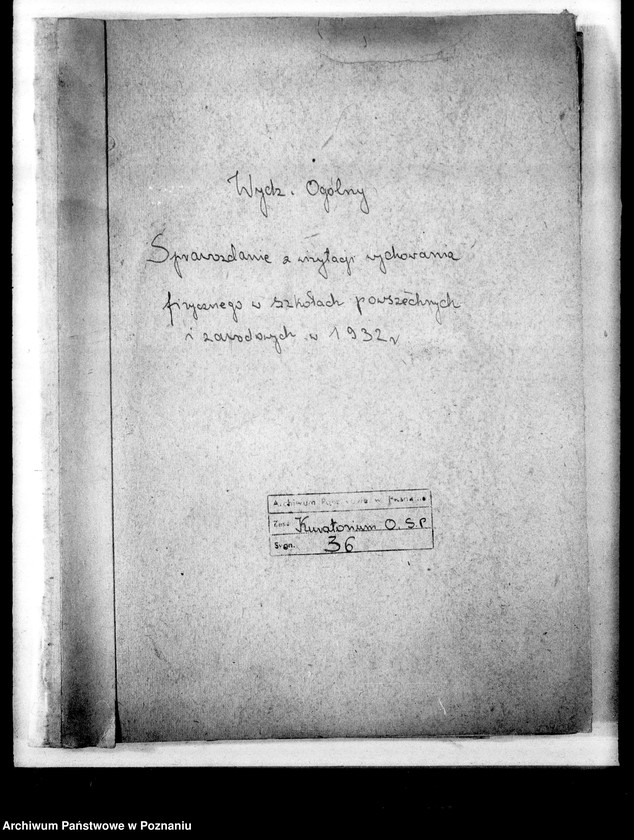 Wydz. Ogólny
Sprawozdanie z wizytacji wychowania
fizycznego w szkołach powszechnych
i zawodowych w 1932 r
Archiwum w Poznaniu
Zesp. Kuratorium O. S. P.
Sygn. 36
Archiwum Państwowe w Poznaniu